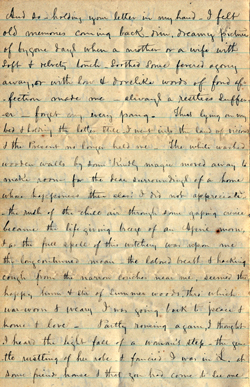 And so - holding your letter in my hand - I felt
old memories coming back, dim, dreamy pictures
of bygone days when a mother or a wife with
soft & velvety touch soothed some fevered agony
away, or with low & dovelike words of fond af-
fection made me - always a restless suffer-
er - forget my weary pangs. That lying on my
bed & having the letter there I
& the Present no longer held me. The white washed
wooden walls by some kindly magic moved away to
make room for the dear surroundings of a home
whose happiness then I did not appreciate
the rush of the chill air through some gaping crevice
became the life giving breeze of an morn,
& as the full spell of this witchery was upon me
the long continued moan - the labored breath & hacking
cough from the narrow couches near me, seemed the
happy hum & stir of Summer woods thro' which
war-worn & weary I was going back to peace &
home & love - Partly rousing again, I thought
I heard the light fall of a woman's step - the
the rustling of her robe & fancied I was in
some friend's house & that you had come to